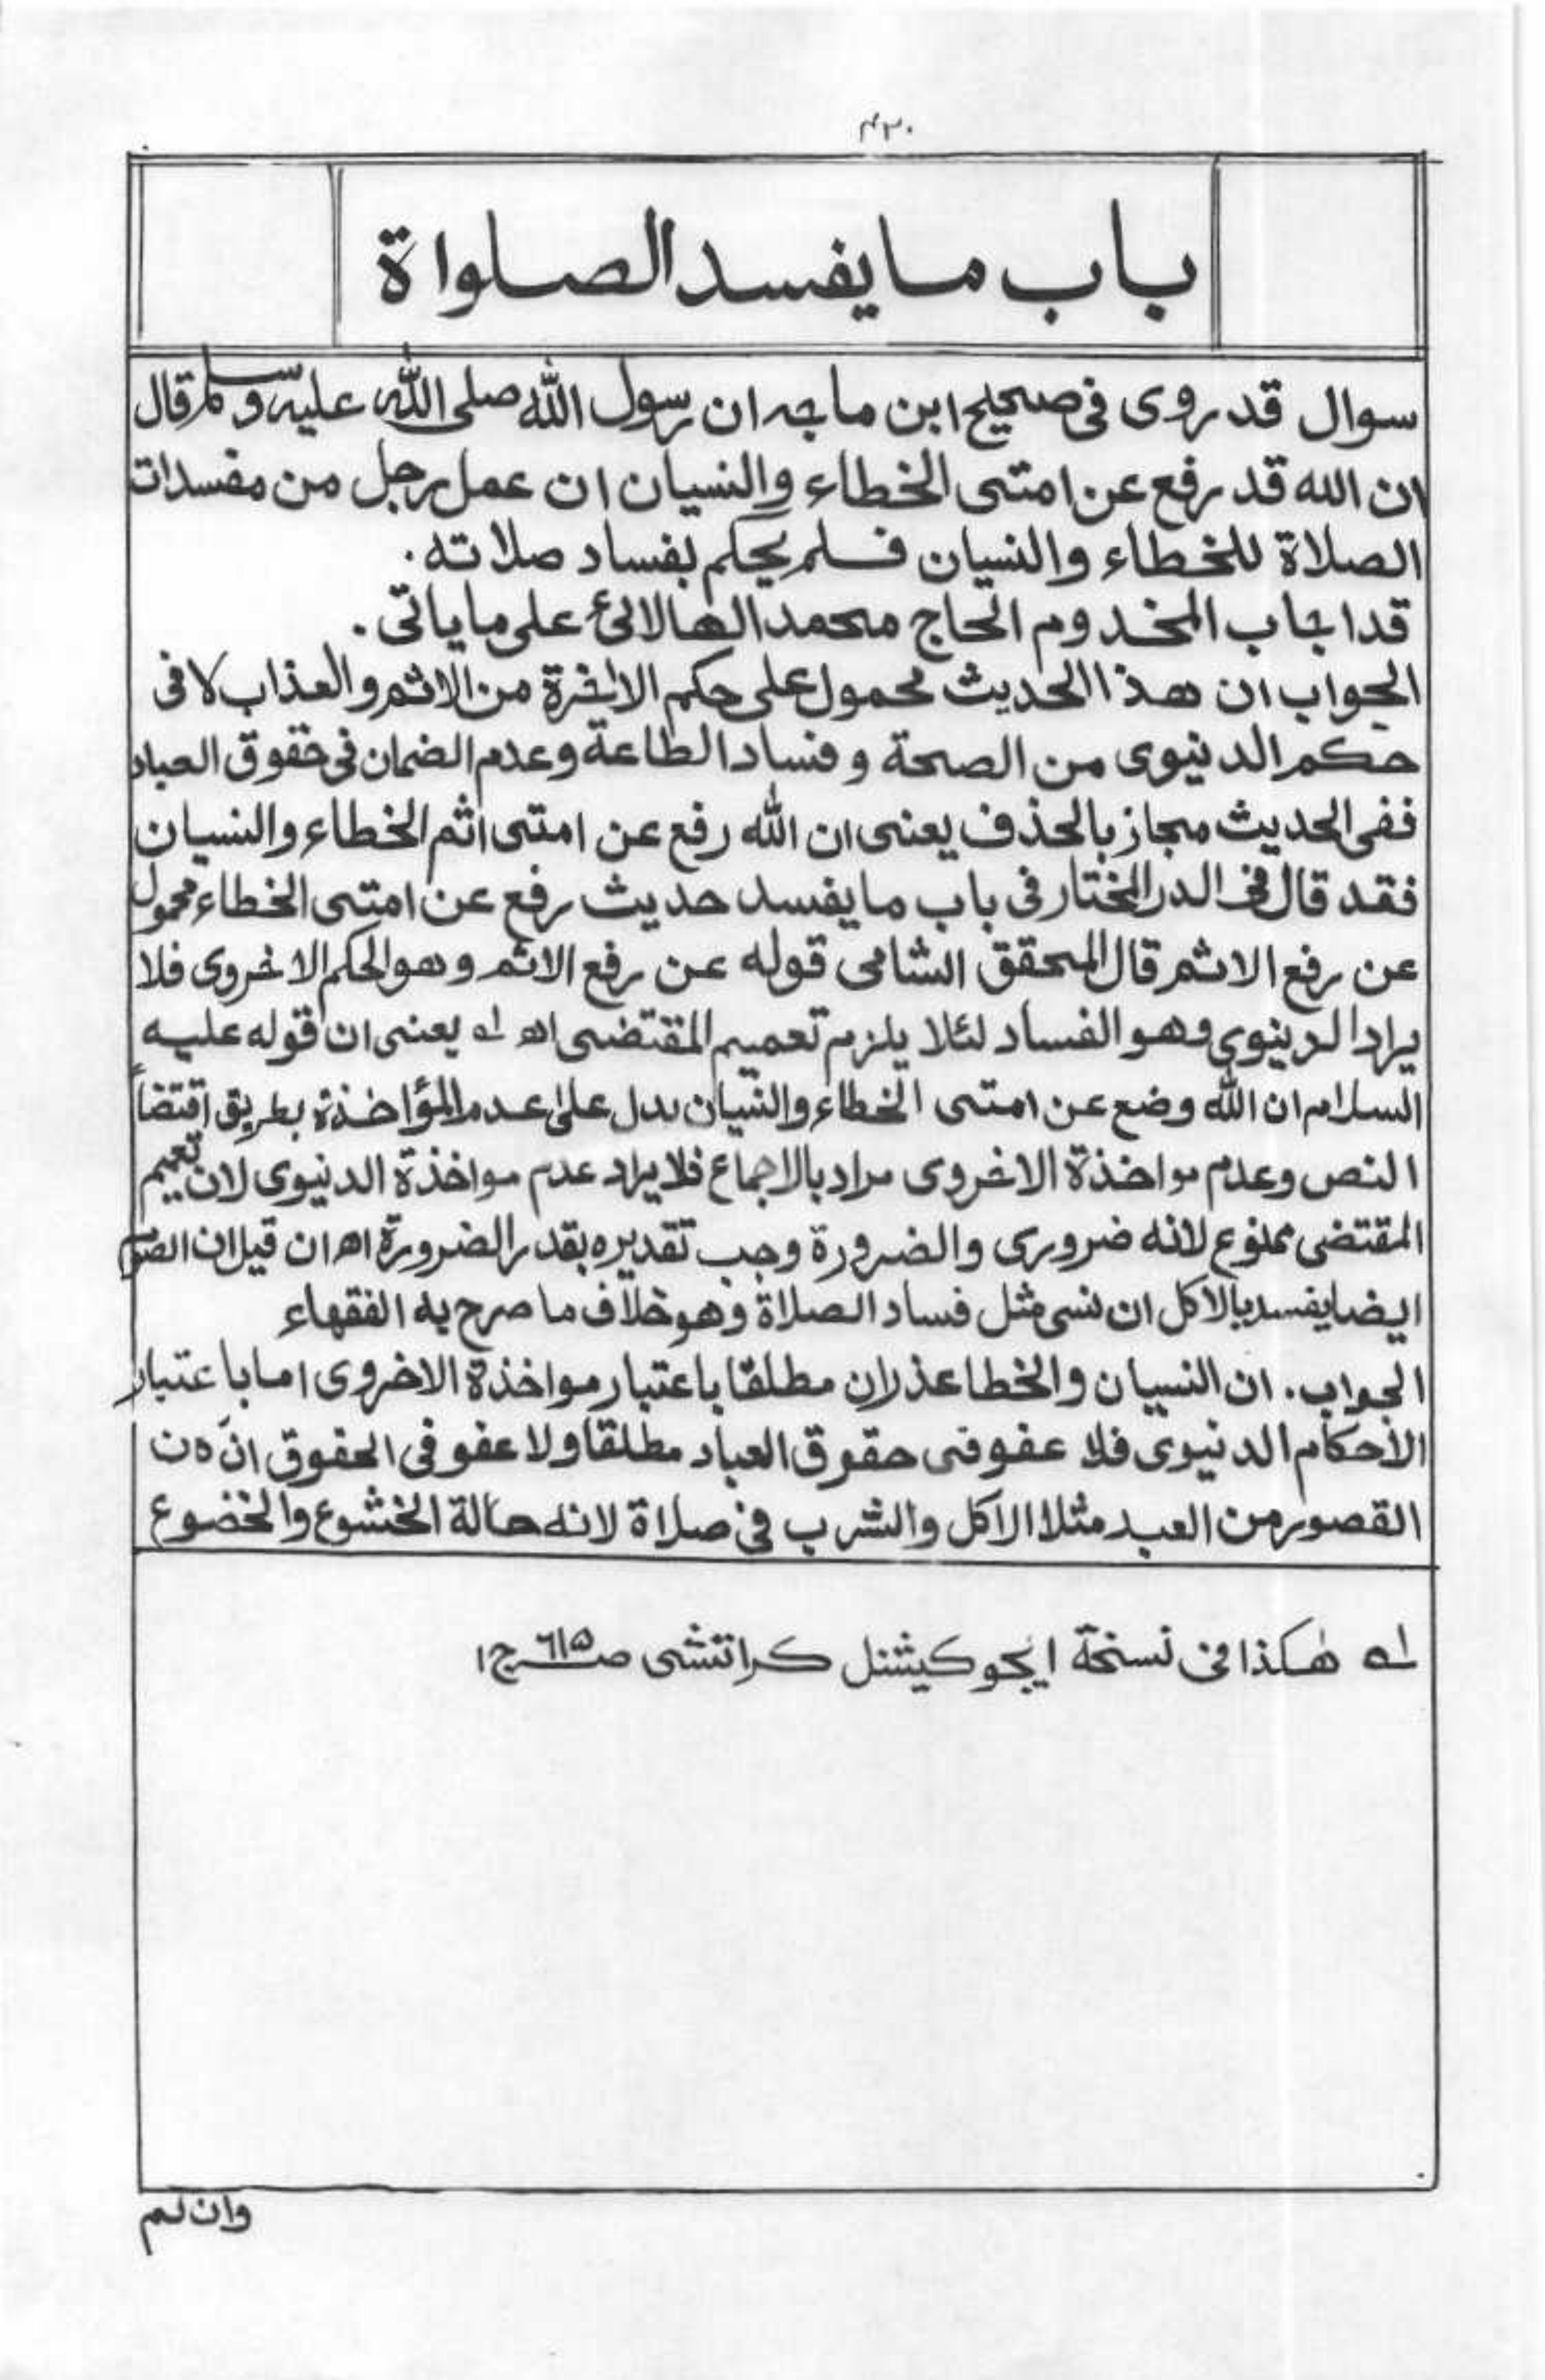 ۴۲۰
باب ما يفسد الصلواة
سوال قد روى فى صحيح ابن ماجه ان رسول الله صلى الله عليه وسلم قال
ان الله قد رفع عن امتى الخطاء والنسيان ان عمل رجل من مفسدات
الصلاة للخطاء والنسيان فلم يحكم بفساد صلاته.
قد اجاب المخدوم الحاج محمد الهالائ على ما ياتى.
الجواب ان هذا الحديث محمول على حكم الاخرة من الاثم والعذاب لا فى
حكم الدينوى من الصحة و فساد الطاعة وعدم الضمان فى حقوق العباد
ففى الحديث مجاز بالحذف يعنى ان الله رفع عن امتى اثم الخطاء والنسيان
فقد قال فى الدر المختار فى باب ما يفسد حديث رفع عن امتى الخطاء محمول
عن رفع الاثم قال المحقق الشامى قوله عن رفع الاثم وهو الحكم الاخروى فلا
يراد الدينوى وهو الفساد لئلا يلزم تعميم المقتضى اھ لہ يعنى ان قوله عليه
السلام ان الله وضع عن امتى الخطاء والنسيان يدل على عدم المؤاخذة بطريق اقتضاً
النص وعدم مواخذة الاخروى مراد بالاجماع فلا يراد عدم مواخذة الدنيوى لان تعميم
المقتضى ممنوع لانه ضرورى والضرورة وجب تقديره بقدر الضرورة اھ ان قيل ان الصوم
ايضا يفسد بالاكل ان نسى مثل فساد الصلاة وهو خلاف ما صرح به الفقهاء
الجواب. ان النسيان والخطا عذران مطلقا باعتبار مواخذة الاخروى اما باعتبار
الاحكام الدنيوى فلا عفو فى حقوق العباد مطلقا ولا عفو فى الحقوق ان
القصور من العبد مثلا الاكل والشرب فى صلاة لانه حالة الخشوع والخضوع
لہ هكذا فى نسخة ايجوكيشنل كراتشى صـ٦١٥ ج١
وان لم